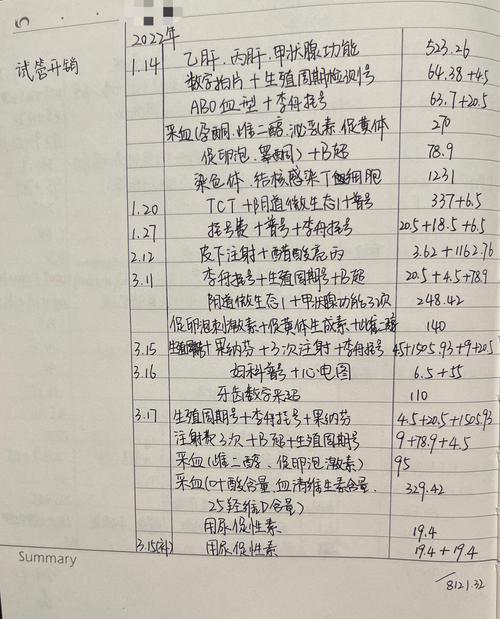 2022年
试管开销
1.14 乙肝.丙肝.甲状腺功能 523.26
数字拍片+生殖周期检测号 64.38+4.5
ABO血型+李舟挂号 63.7+20.5
采血(孕酮.雌二醇.泌乳素.促黄体 270
促卵泡.睾酮)+B超 78.9
染色体.结核感染T细胞 1231
1.20 TCT+阴道微生态1+普号 337+6.5
1.27 挂号费+普号+李舟挂号 20.5+18.5+6.5
2.12 皮下注射+醋酸亮丙 3.62+1162.76
3.11 李舟挂号+生殖周期号+B超 20.5+4.5+78.9
阴道微生态1+甲状腺功能3次 248.42
促卵泡刺激素+促黄体生成素+雌二醇 140
3.15 生殖周期+果纳芬+3次注射+李舟挂号 4.5+1505.93+9+20.5
3.16 妇科普号+心电图 6.5+55
牙齿数字采码 110
3.17 生殖周期号+李舟挂号+果纳芬 4.5+20.5+1505.93
注射费3次+B超+生殖周期号 9+78.9+4.5
采血(雌二醇、促卵泡激素) 95
采血(叶酸含量.血清维生素含量. 329.42
25羟维D含量)
用尿促性素 19.4
3.15(补) 用尿促性素 19.4+19.4
Summary
8121.32